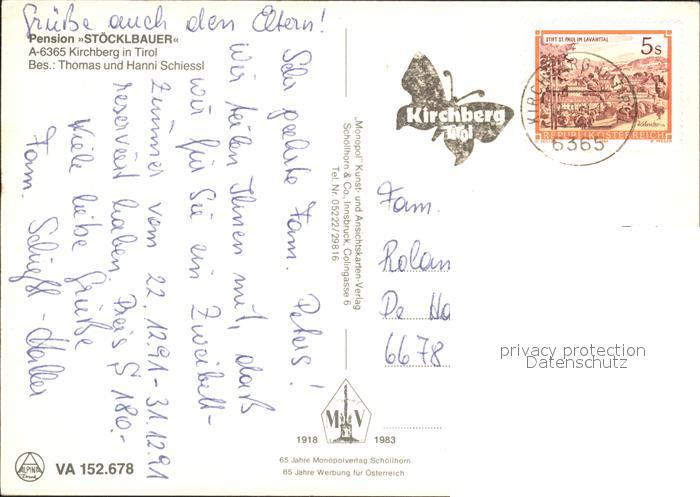 Grüße auch den Eltern!
Pension »STÖCKLBAUER«
A-6365 Kirchberg in Tirol
Bes.: Thomas und Hanni Schiessl
Sehr geehrte Fam. Peters!
Wir teilen Ihnen mit, daß
wir für Sie ein Zweibett-
zimmer vom 22.12.91-31.12.91
reserviert haben Preis S 180.-
Viele liebe Grüße
Fam. Schießl-Haller
VA 152.678
„Monopol“ Kunst- und Ansichtskarten-Verlag
Schöllhorn & Co., Innsbruck, Colingasse 6
Tel. Nr. 05222/29816
1918 M V 1983
65 Jahre Monopolverlag Schöllhorn
65 Jahre Werbung für Österreich
Kirchberg
Tirol
STIFT ST. PAUL IM LAVANTTAL
5s
REPUBLIK ÖSTERREICH
6365
Fam.
Rolan
De Ha
6678
privacy protection
Datenschutz